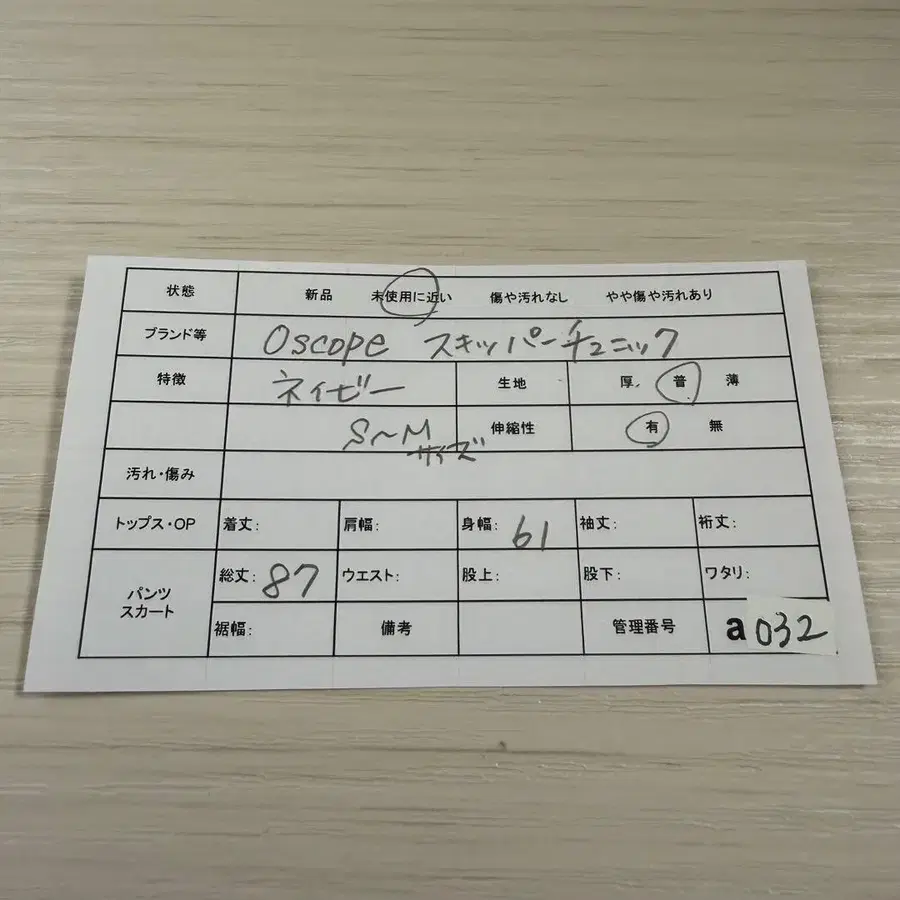 状態 新品 未使用に近い 傷や汚れなし やや傷や汚れあり
ブランド等 Oscope スキッパーチュニック
特徴 ネイビー 生地 厚 普 薄
S~M サイズ 伸縮性 有 無
汚れ・傷み
トップス・OP 着丈: 肩幅: 身幅: 61 袖丈: 裄丈:
パンツ スカート 総丈: 87 ウエスト: 股上: 股下: ワタリ:
裾幅: 備考 管理番号 a032